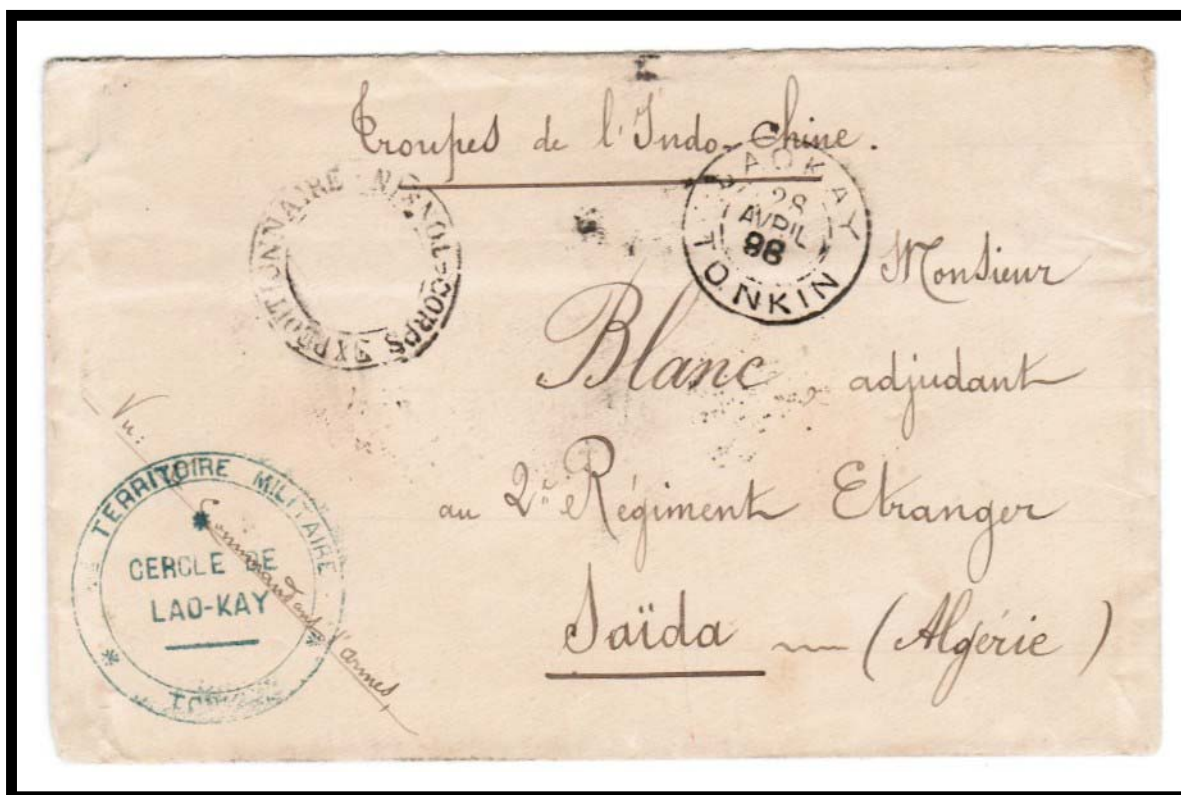 Troupes de l'Indo-Chine.
CORPS EXPEDITIONNAIRE
LAOKAY
28
AVRIL
98
TONKIN
Monsieur
Blanc, adjudant
au 2e Régiment Etranger
Saïda (Algérie)
Vu:
Commandant d'armes,
TERRITOIRE MILITAIRE
CERCLE DE
LAO-KAY